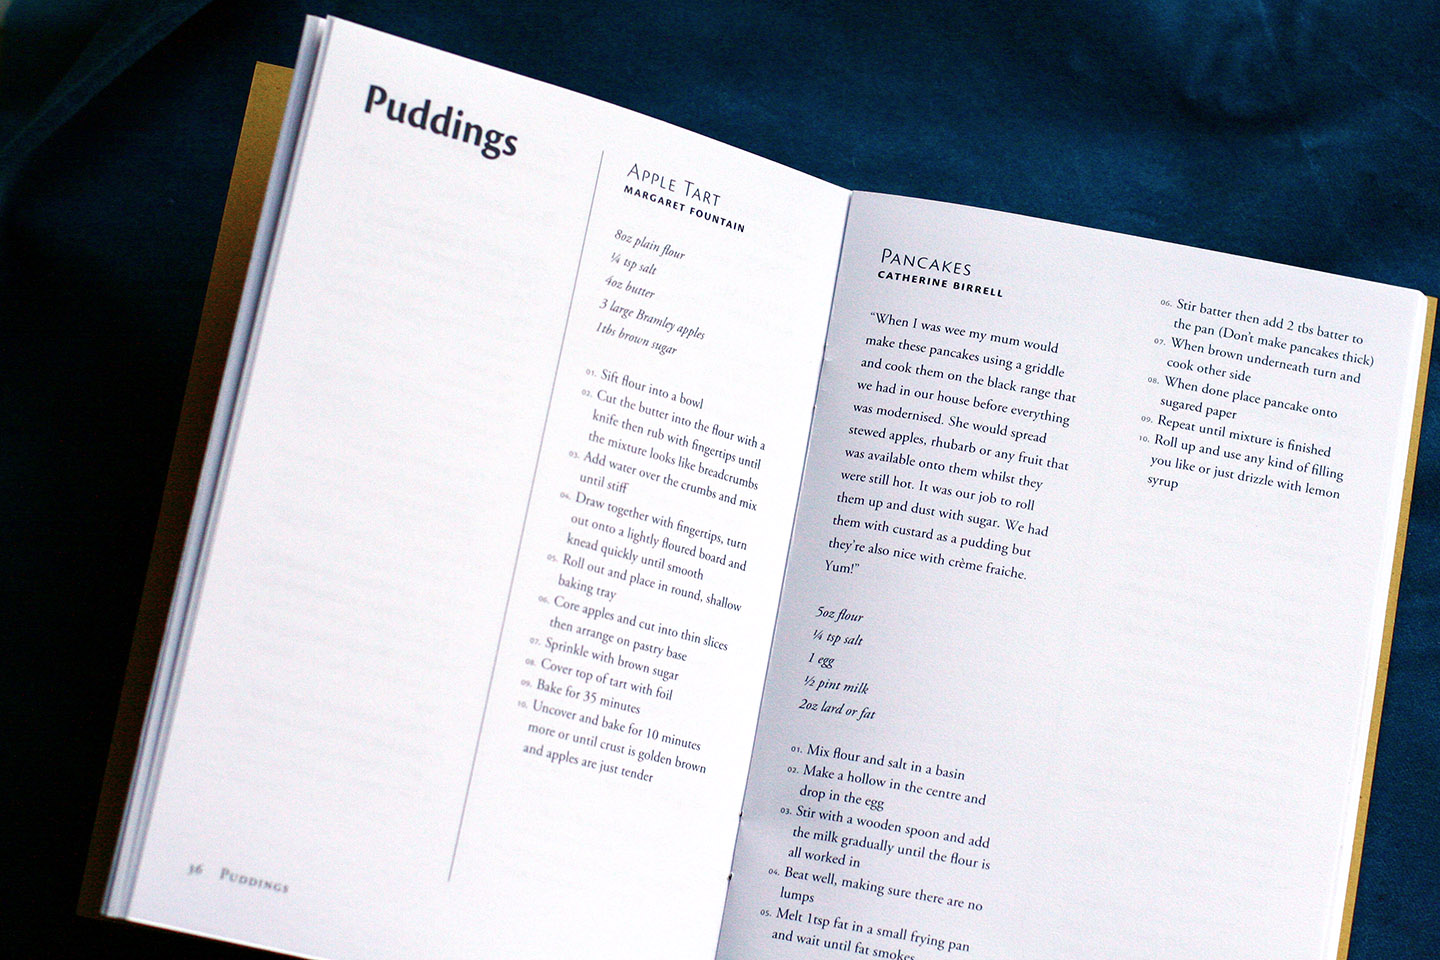 Puddings
Apple Tart
MARGARET FOUNTAIN
8oz plain flour
¼ tsp salt
4oz butter
3 large Bramley apples
1tbs brown sugar
01. Sift flour into a bowl
02. Cut the butter into the flour with a
knife then rub with fingertips until
the mixture looks like breadcrumbs
03. Add water over the crumbs and mix
until stiff
04. Draw together with fingertips, turn
out onto a lightly floured board and
knead quickly until smooth
05. Roll out and place in round, shallow
baking tray
06. Core apples and cut into thin slices
then arrange on pastry base
07. Sprinkle with brown sugar
08. Cover top of tart with foil
09. Bake for 35 minutes
10. Uncover and bake for 10 minutes
more or until crust is golden brown
and apples are just tender
36 Puddings
Pancakes
CATHERINE BIRRELL
“When I was wee my mum would
make these pancakes using a griddle
and cook them on the black range that
we had in our house before everything
was modernised. She would spread
stewed apples, rhubarb or any fruit that
was available onto them whilst they
were still hot. It was our job to roll
them up and dust with sugar. We had
them with custard as a pudding but
they’re also nice with crème fraiche.
Yum!”
5oz flour
¼ tsp salt
1 egg
½ pint milk
2oz lard or fat
01. Mix flour and salt in a basin
02. Make a hollow in the centre and
drop in the egg
03. Stir with a wooden spoon and add
the milk gradually until the flour is
all worked in
04. Beat well, making sure there are no
lumps
05. Melt 1tsp fat in a small frying pan
and wait until fat smokes
06. Stir batter then add 2 tbs batter to
the pan (Don’t make pancakes thick)
07. When brown underneath turn and
cook other side
08. When done place pancake onto
sugared paper
09. Repeat until mixture is finished
10. Roll up and use any kind of filling
you like or just drizzle with lemon
syrup